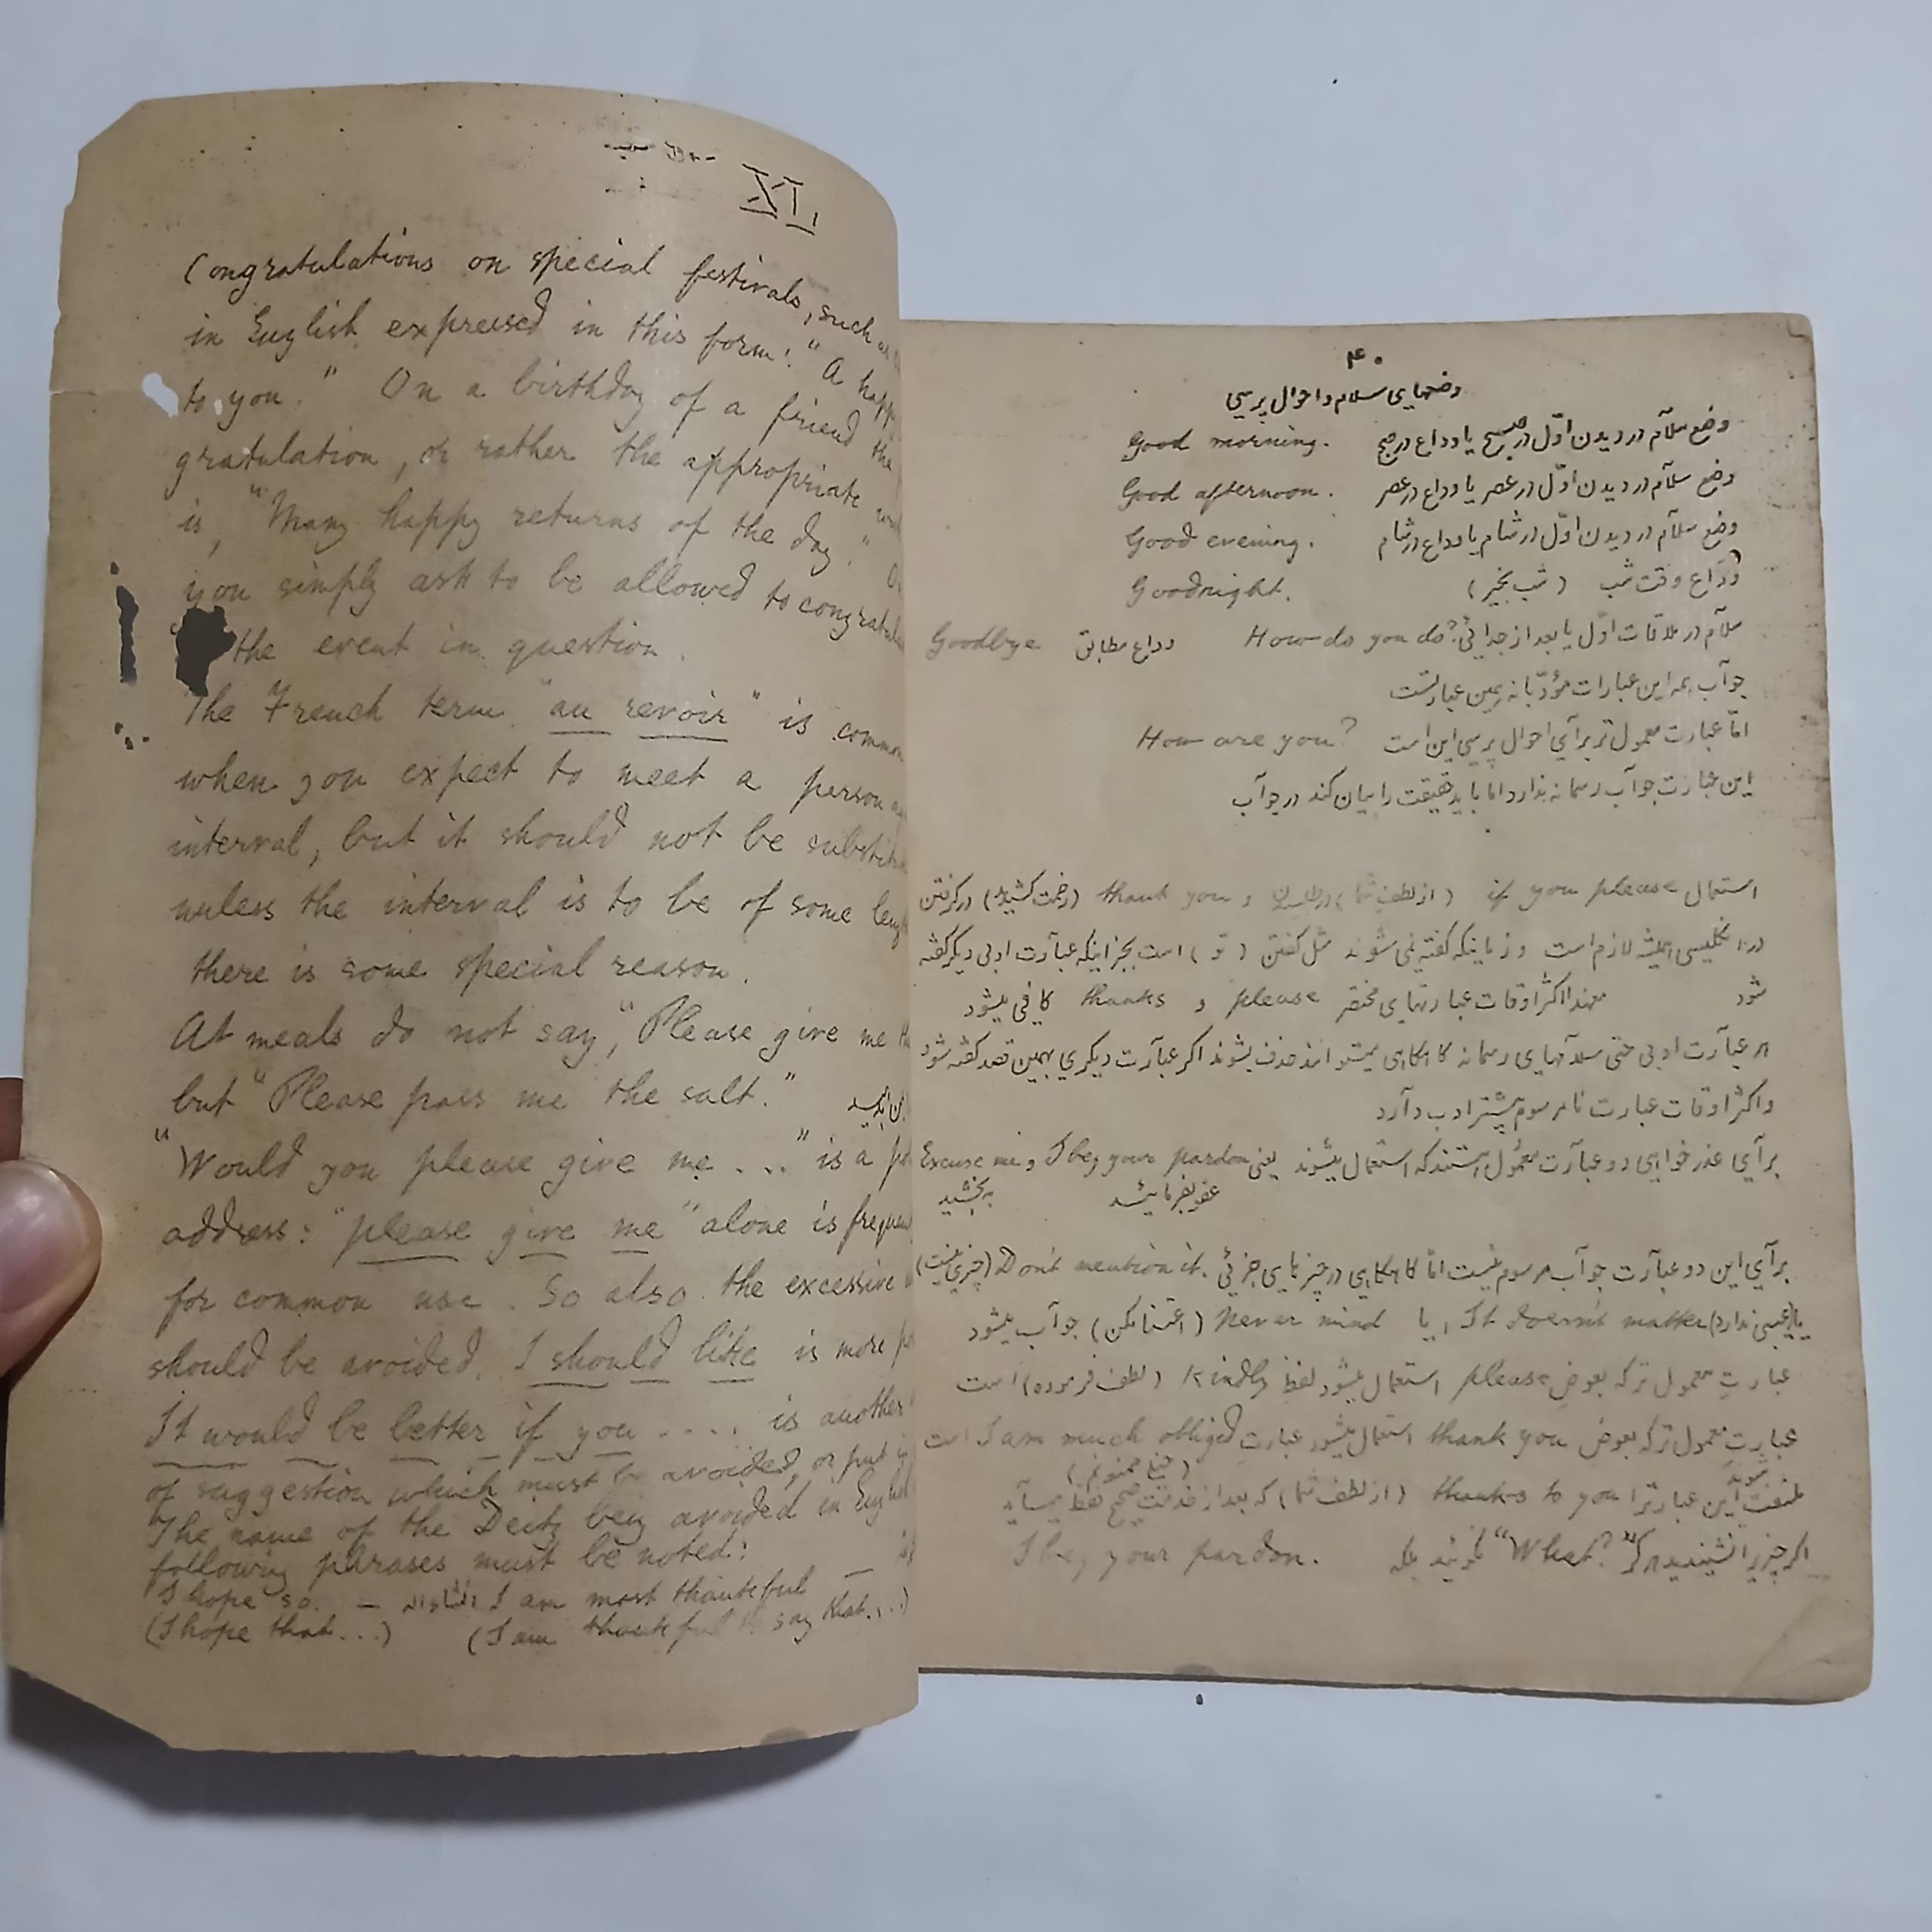 XI
Congratulations on special festivals, such as
in English expressed in this form: "A happ
to you." On a birthday of a friend the
gratulation, or rather the appropriate
is, "Many happy returns of the day."
you simply ask to be allowed to congratula
the event in question.
The French term "au revoir" is common
when you expect to meet a person
interval, but it should not be substit
unless the interval is to be of some leng
there is some special reason.
At meals do not say, "Please give me
but "Please pass me the salt."
"Would you please give me ..." is a
address: "please give me" alone is frequen
for common use. So also the excessive
should be avoided. I should like is more
It would be better if you .... is another
of suggestion which must be avoided, or put
The name of the Deity being avoided in English
following phrases must be noted:
I hope so. — انشاءالله I am most thankful —
(I hope that...) (I am thankful to say that...)
۴۰
وضعهای سلام و احوال پرسی
وضع سلآم در دیدن اوّل در صبح یا وداع در صبح Good morning.
وضع سلآم در دیدن اوّل در عصر یا وداع در عصر Good afternoon.
وضع سلآم در دیدن اوّل در شام یا وداع در شام Good evening.
ودّاع وقت شب (شب بخیر) Goodnight.
سلآم در ملاقات اوّل یا بعد از جدائی How do you do? وداع مطابق Goodbye
جوآب همه این عبارات مؤدّبانه همین عبارتست
امّا عبارت معمول تر برآی احوال پرسی این است How are you?
این عبارت جوآب رسمانه ندارد امّا باید حقیقت را بیان کند در جوآب
استعمال if you please (از لطف شما) در طلبیدن و thank you (زحمت کشیدید) در گرفتن
در انگلیسی همیشه لازم است و زمانیکه گفته نمی شوند مثل گفتن (تو) است بجز اینکه عبآرت ادبی دیگر گفته
شود معهذا اکثر اوقات عبارتهای مختصر please و thanks کافی میشود
هر عبآرت ادبی حتی سلآمهای رسمانه گاهگاهی میتوانند حذف بشوند اگر عبآرت دیگری بهمین قصد گفته شود
و اکثر اوقات عبارت نامرسوم بیشتر ادب دآرد
برآی عذر خواهی دو عبآرت معمول هستند که استعمال میشوند یعنی I beg your pardon و Excuse me
عفو بفرمائید ببخشید
برآی این دو عبآرت جوآب مرسوم نیست امّا گاهگاهی در چیزهای جزئی Don't mention it. (چیزی نیست)
یا (عیبی ندارد) It doesn't matter, یا Never mind (اعتنا مکن) جوآب میشود
عبارت معمول تر که بعوض please استعمال میشود لفظ Kindly (لطف فرموده) است
عبارت معمول تر که بعوض thank you استعمال میشود عبارت I am much obliged است
(خیلی ممنونم)
ملتفت این عبارت شوید thanks to you (از لطف شما) که بعد از خدمت صحیح فقط میآید
اگر چیزیرا نشنیدید هرگز "What?" نگوئید بلکه I beg your pardon.